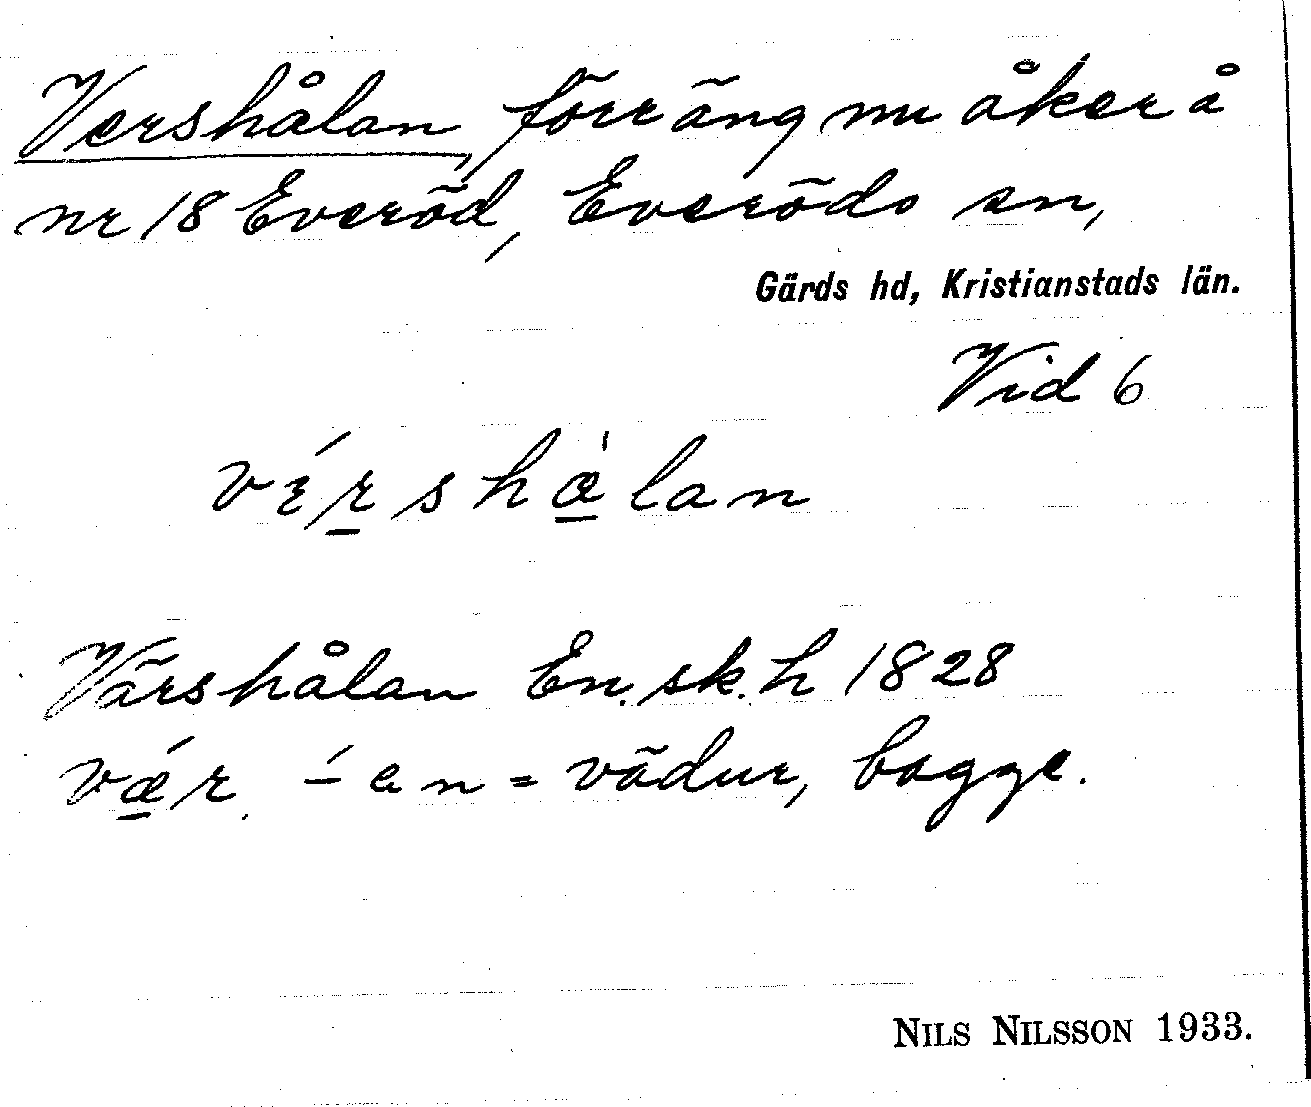 Vershålan, förr äng nu åker å
nr 18 Everöd, Everöds sn,
Gärds hd, Kristianstads län.
Vid 6
vɛ́r̲shœ̲̀lan
Värshålan En. sk. h 1828
vǽ̲r. -́en = vädur, bagge.
NILS NILSSON 1933.